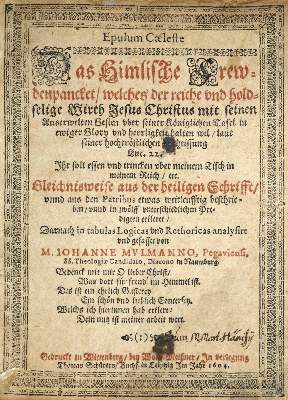 Epulum Cæleste
Das Himlische Frew-
denpancket/ welches der reiche vnd hold-
selige Wirth Jesus Christus mit seinen
Auserwelten Gesten vber seiner Königlichen Tafel in
ewiger Glory vnd herrligkeit halten wil / laut
seiner hochtröstlichen
Luc. 22.
Ihr solt essen vnd trincken vber meinem Tisch in
meinem Reich / etc.
Gleichnisweise aus der heiligen Schrifft/
vnnd aus den Patribus etwas weitleufftig beschrie-
ben/ vnnd in zwölff vnterschiedlichen Pre-
digten erkleret /
Darnach in tabulas Logicas vnd Rethoricas analysirt
vnd gefasset von
M. IOHANNE MVLMANNO, Pegaviensi,
SS. Theologiæ Candidato, Diacono in Naumburg.
Gedenck mit mir O lieber Christ/
Was dort für frewd im Himmel ist.
Des ist ein ehrlich Gasterey
Ein schön vnd lieblich Conterfey.
Welchs ich hierinnen hab erklert/
Dein nutz ist meiner arbeit wert.
Gedruckt zu Witenberg/ bey Wolff Meisner/ In verlegung
Thomas Schürers/ Buchf. in Leipzig Im Jahr 1604.